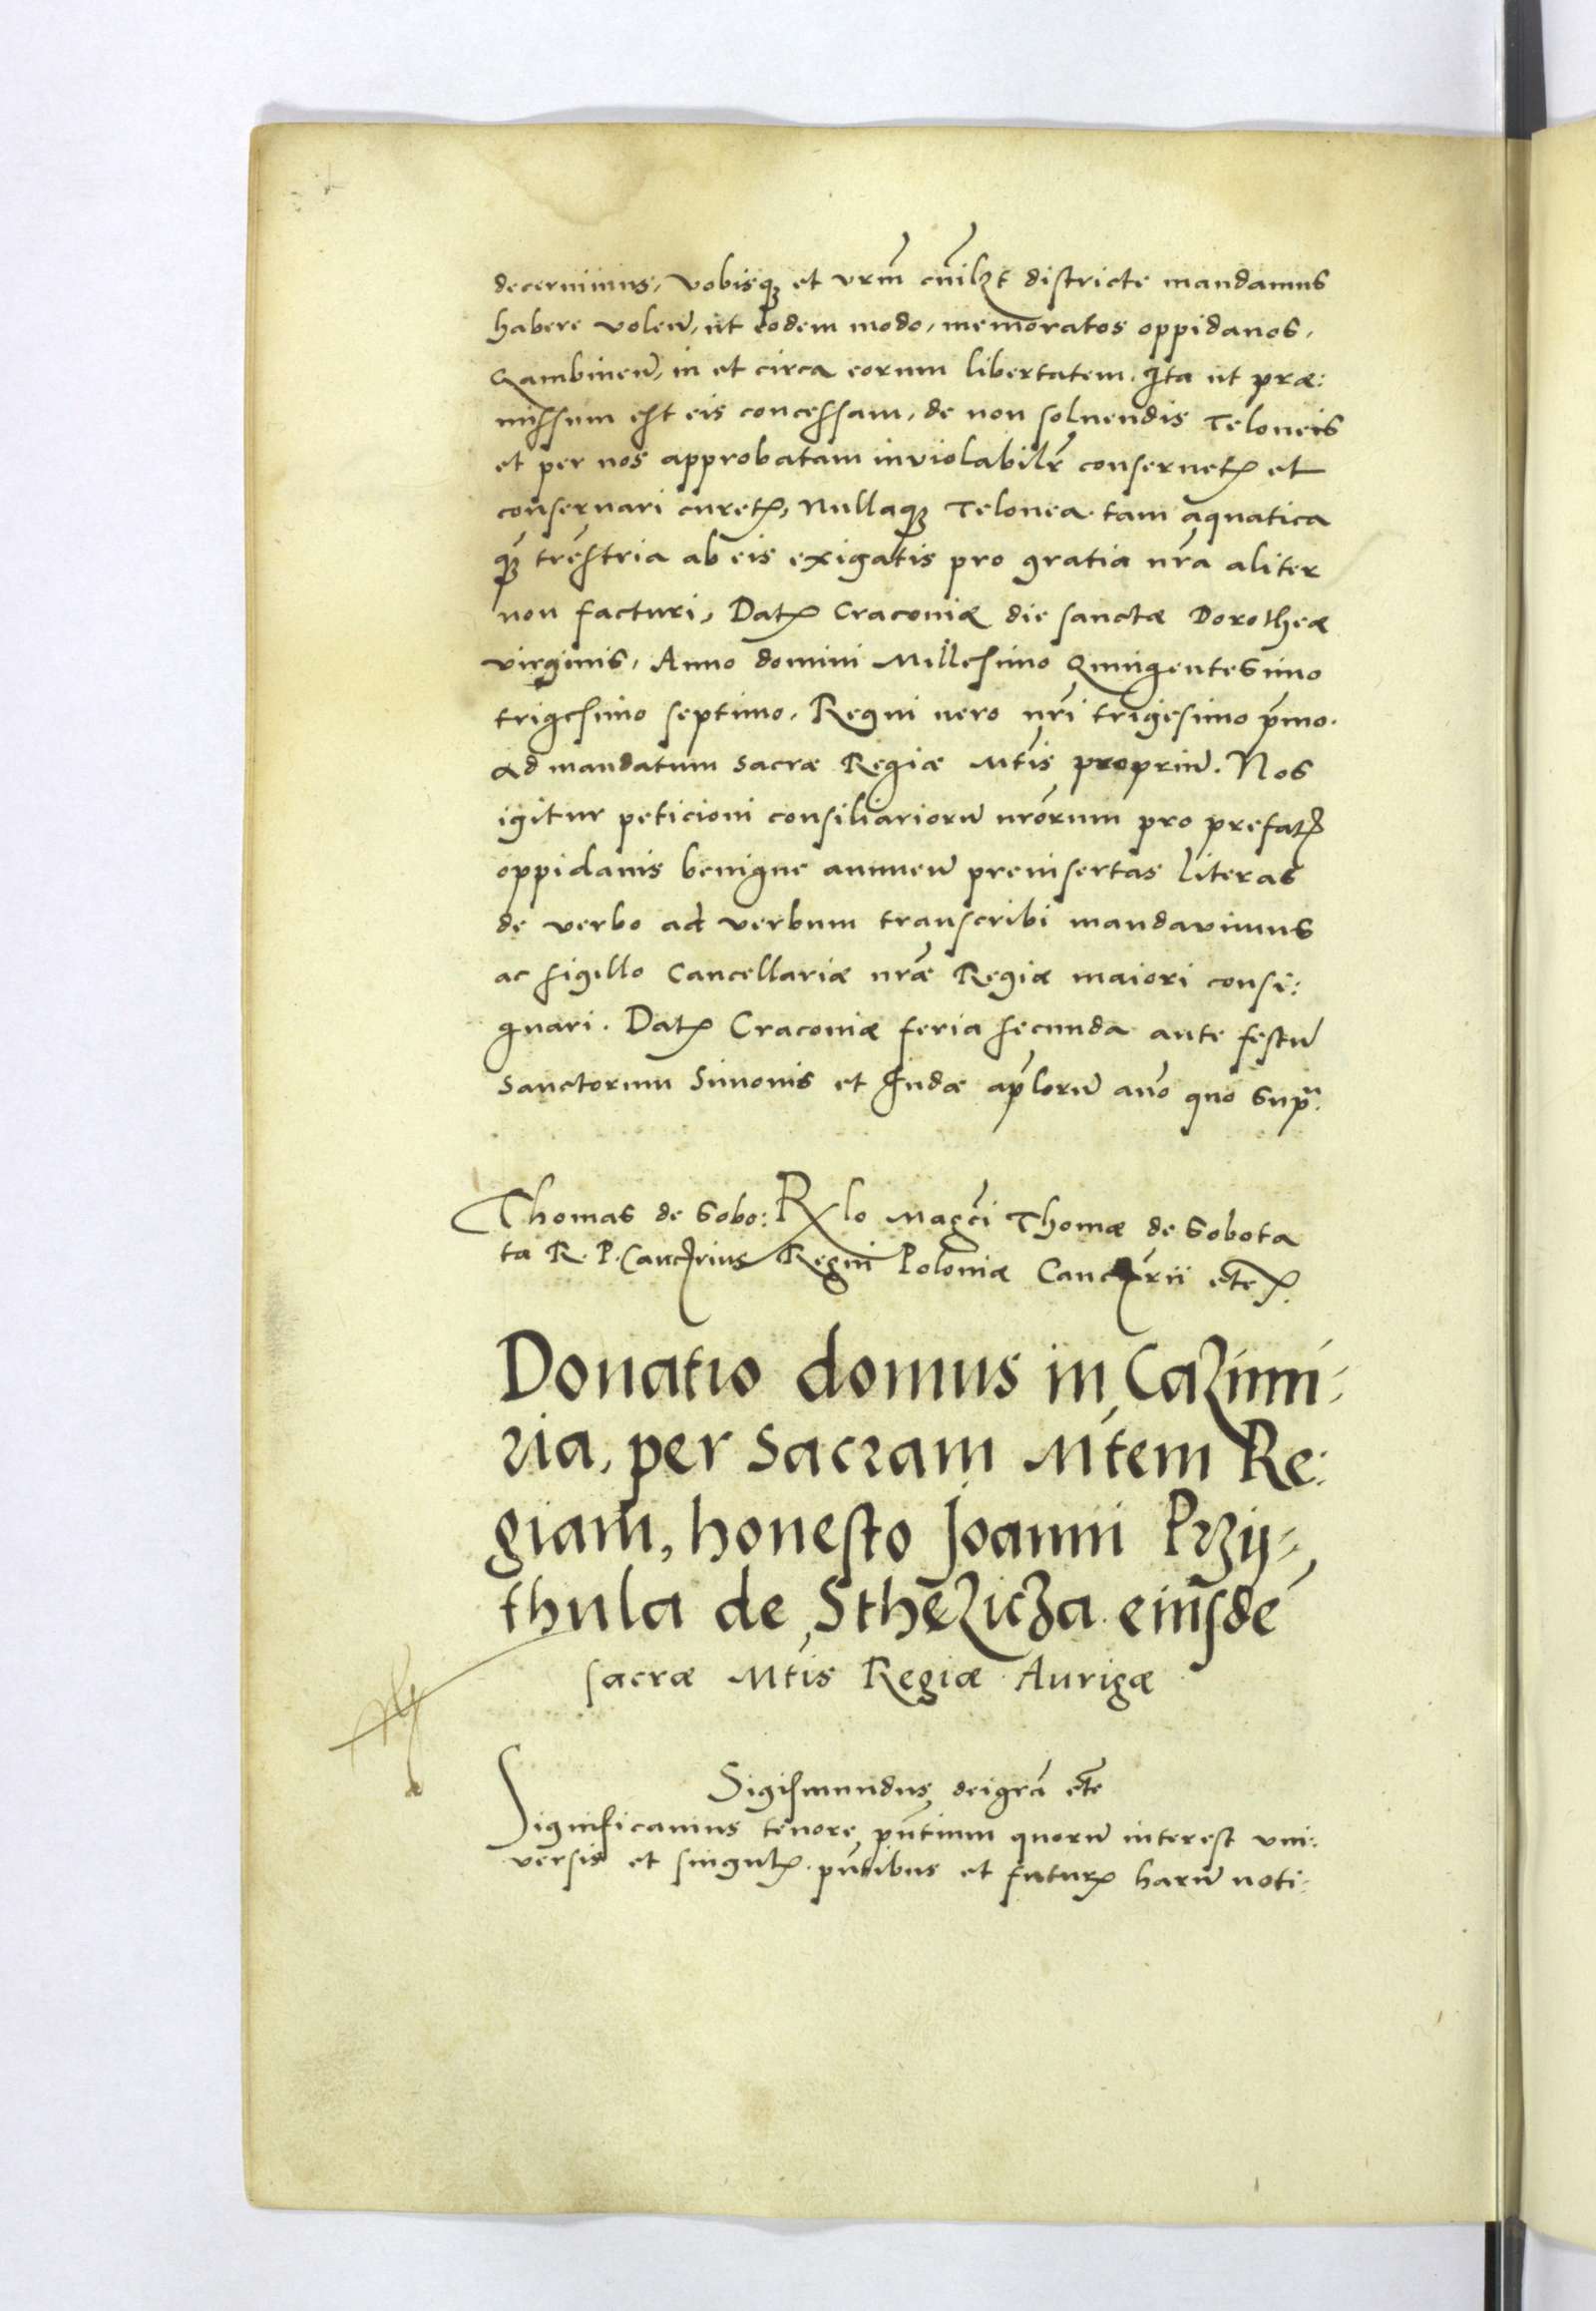 decernimus, vobisq₃ et vrm̃ cuil₃t districte mandamus
habere volen̄, ut eodem modo, memoratos oppidanos,
Gambinen̄, in et circa eorum libertatem. Ita ut præ:
missum est eis concessam, de non solvendis Teloneis
et per nos approbatam inviolabilr̃ conservetꝭ et
conservari curetꝭ, Nullaq₃ Telonea tam aquatica
q₃̃ trẽstria ab eis exigatis pro gratia nrã aliter
non facturi, Datꝭ Cracoviæ die sanctæ Dorotheæ
virginis, Anno domini Millesimo Quingentesimo
trigesimo septimo, Regni vero nrĩ trigesimo p̃mo.
Ad mandatum Sacræ Regiæ Mtis propriũ. Nos
igitur peticioni consiliariorũ nrõrum pro prefatꝭ
oppidanis benigne annuen̄ preinsertas literas
de verbo ad verbum transcribi mandavimus
ac sigillo Cancellariæ nræ̃ Regiæ maiori consi:
gnari. Datꝭ Cracoviæ feria secunda ante festũ
Sanctorum Simonis et Iudæ ap̃lorũ anõ quo supᵃ.
Thomas de Sobo: Rlo Magcĩ Thomæ de Sobota
ta R. P. Cancꝭrius Regni Poloniæ Cancrii etcꝭ.
Donatio domus in Cazimi-
ria, per Sacram Mtem Re:
giam, honesto Joanni Przÿ-
thula de Sthezicza eiusdẽ
sacræ Mtis Regiæ Aurigæ
Sigismundus deigrã etc
Significamus tenore pñtium quorũ interest uni:
versis et singulꝭ pñtibus et futurꝭ harũ noti-